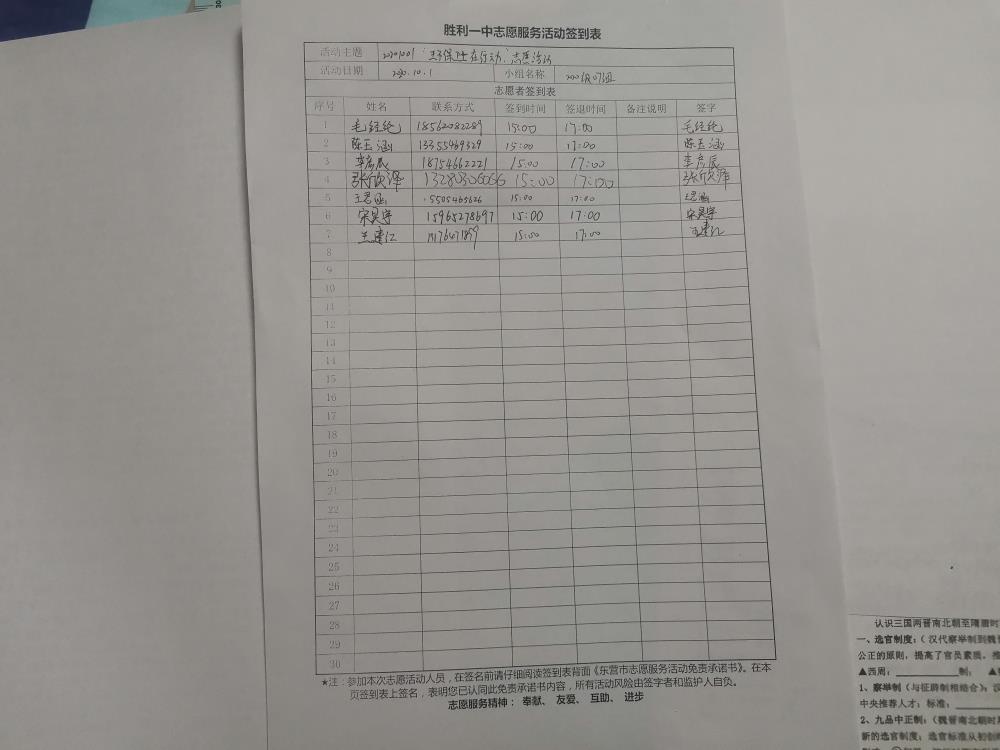 胜利一中志愿服务活动签到表
活动主题 20201001"环保卫士在行动"志愿活动
活动日期 2020.10.1 小组名称
志愿者签到表
序号 姓名 联系方式 签到时间 签退时间 备注说明 签字
1 毛经纶 18562082289 15:00 17:00 毛经纶
2 陈玉涵 13355469329 15:00 17:00 陈玉涵
3 李彦辰 18754662221 15:00 17:00 李彦辰
4 张欣泽 13280306066 15:00 17:00 张欣泽
5 王君涵 15505465626 15:00 17:00 王君涵
6 宋昊宇 15965278697 15:00 17:00 宋昊宇
7 15:00 17:00
8
9
10
11
12
13
14
15
16
17
18
19
20
21
22
23
24
25
26
27
28
29
30
★注：参加本次志愿活动人员，在签名前请仔细阅读签到表背面《东营市志愿服务活动免责承诺书》。在本
页签到表上签名，表明您已认同此免责承诺书内容，所有活动风险由签字者和监护人自负。
志愿服务精神： 奉献、 友爱、 互助、 进步
认识三国两晋南北朝至隋唐时
一、选官制度：（汉代察举制到魏晋
公正的原则，提高了官员素质，推
▲西周：制；▲
1、察举制（与征辟制相结合）：汉
中央推荐人才；标准：
2、九品中正制：（魏晋南北朝时期
新的选官制度；选官标准从初创